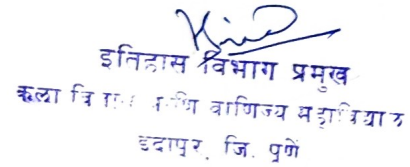 इतिहास विभाग प्रमुख
कला वि आणि वाणिज्य महाविद्यालय
इंदापूर, जि. पुणे